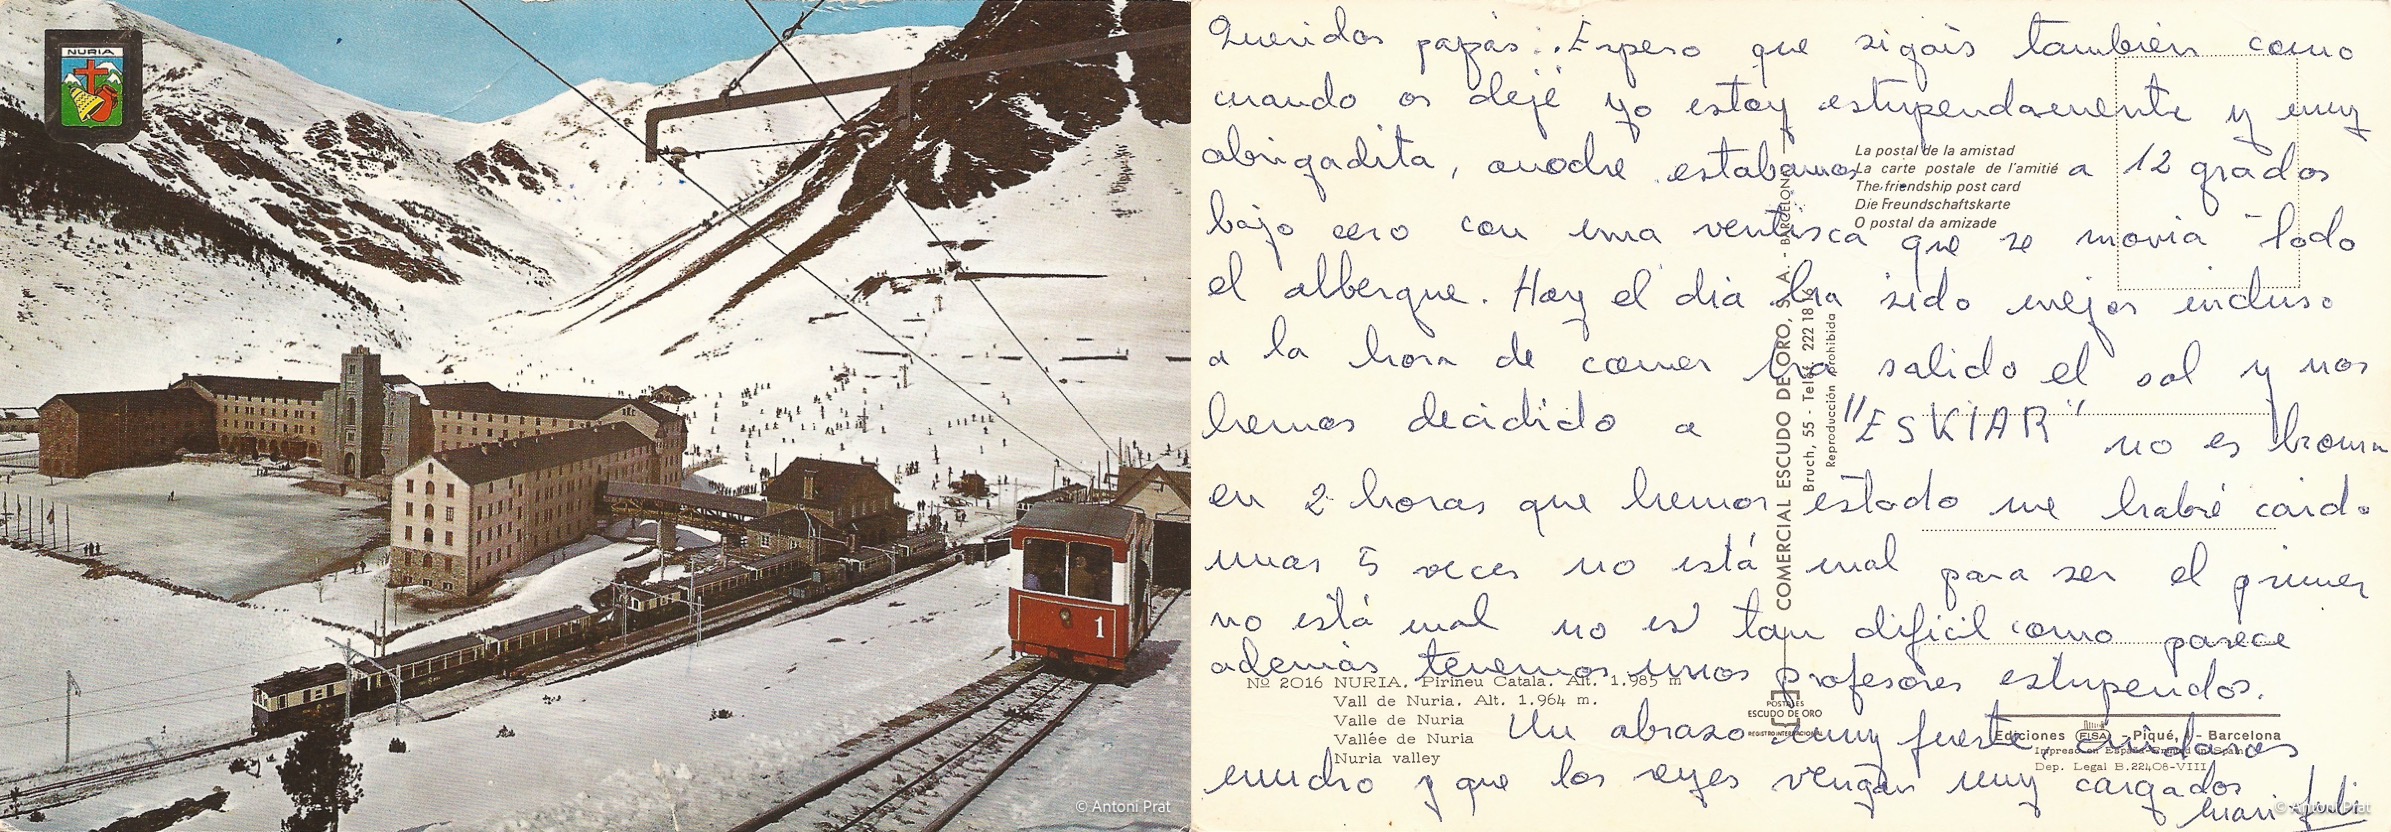 NURIA
1
© Antoni Prat
Queridos papás: Espero que sigáis también como
cuando os dejé yo estoy estupendamente y muy
abrigadita, anodre estabamos a 12 grados
bajo cero con una ventisca que se movia todo
el albergue. Hoy el dia ha sido mejor incluso
a la hora de comer ha salido el sol y nos
hemos decidido a "ESKIAR" no es broma
en 2 horas que hemos estado me habré caido
unas 5 veces no está mal para ser el primer
no está mal no es tan dificil como parece
además tenemos unos profesores estupendos.
Un abrazo muy fuerte cuidaros
mucho y que los reyes vengan muy cargados
Mari Juli
La postal de la amistad
La carte postale de l'amitié
The friendship post card
Die Freundschaftskarte
O postal da amizade
COMERCIAL ESCUDO DE ORO, S. A. - BARCELONA
Bruch, 55 - Telef. 222 18
Reproducción prohibida
Nº 2016 NURIA. Pirineu Català. Alt. 1.985 m
Vall de Nuria. Alt. 1.964 m.
Valle de Nuria
Vallée de Nuria
Nuria valley
POSTALES
ESCUDO DE ORO
REGISTRO INTERNACIONAL
Ediciones FISA - Piqué, - Barcelona
Impreso en España - Printed in Spain
Dep. Legal B.22408-VIII
© Antoni Prat